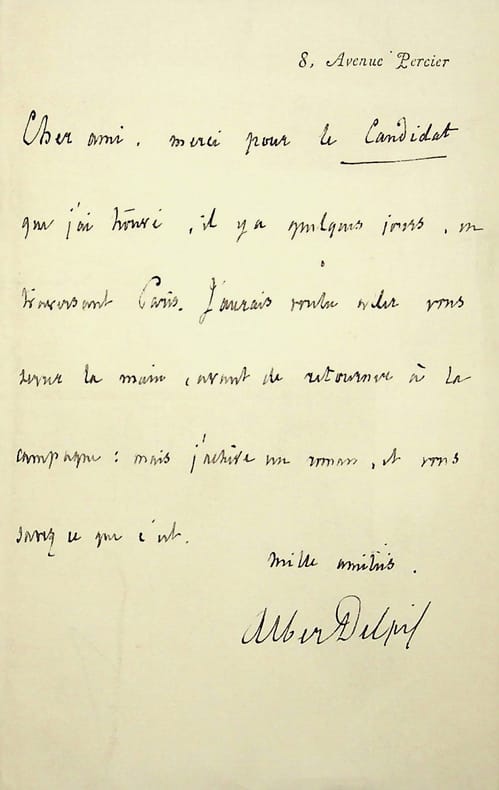 8, Avenue Percier
Cher ami. merci pour le Candidat
que j'ai trouvé, il y a quelques jours, en
traversant Paris. J'aurais voulu aller vous
serrer la main, avant de retourner à la
campagne : mais j'achève un roman, et vous
savez ce que c'est.
Mille amitiés.
Albert Delpit